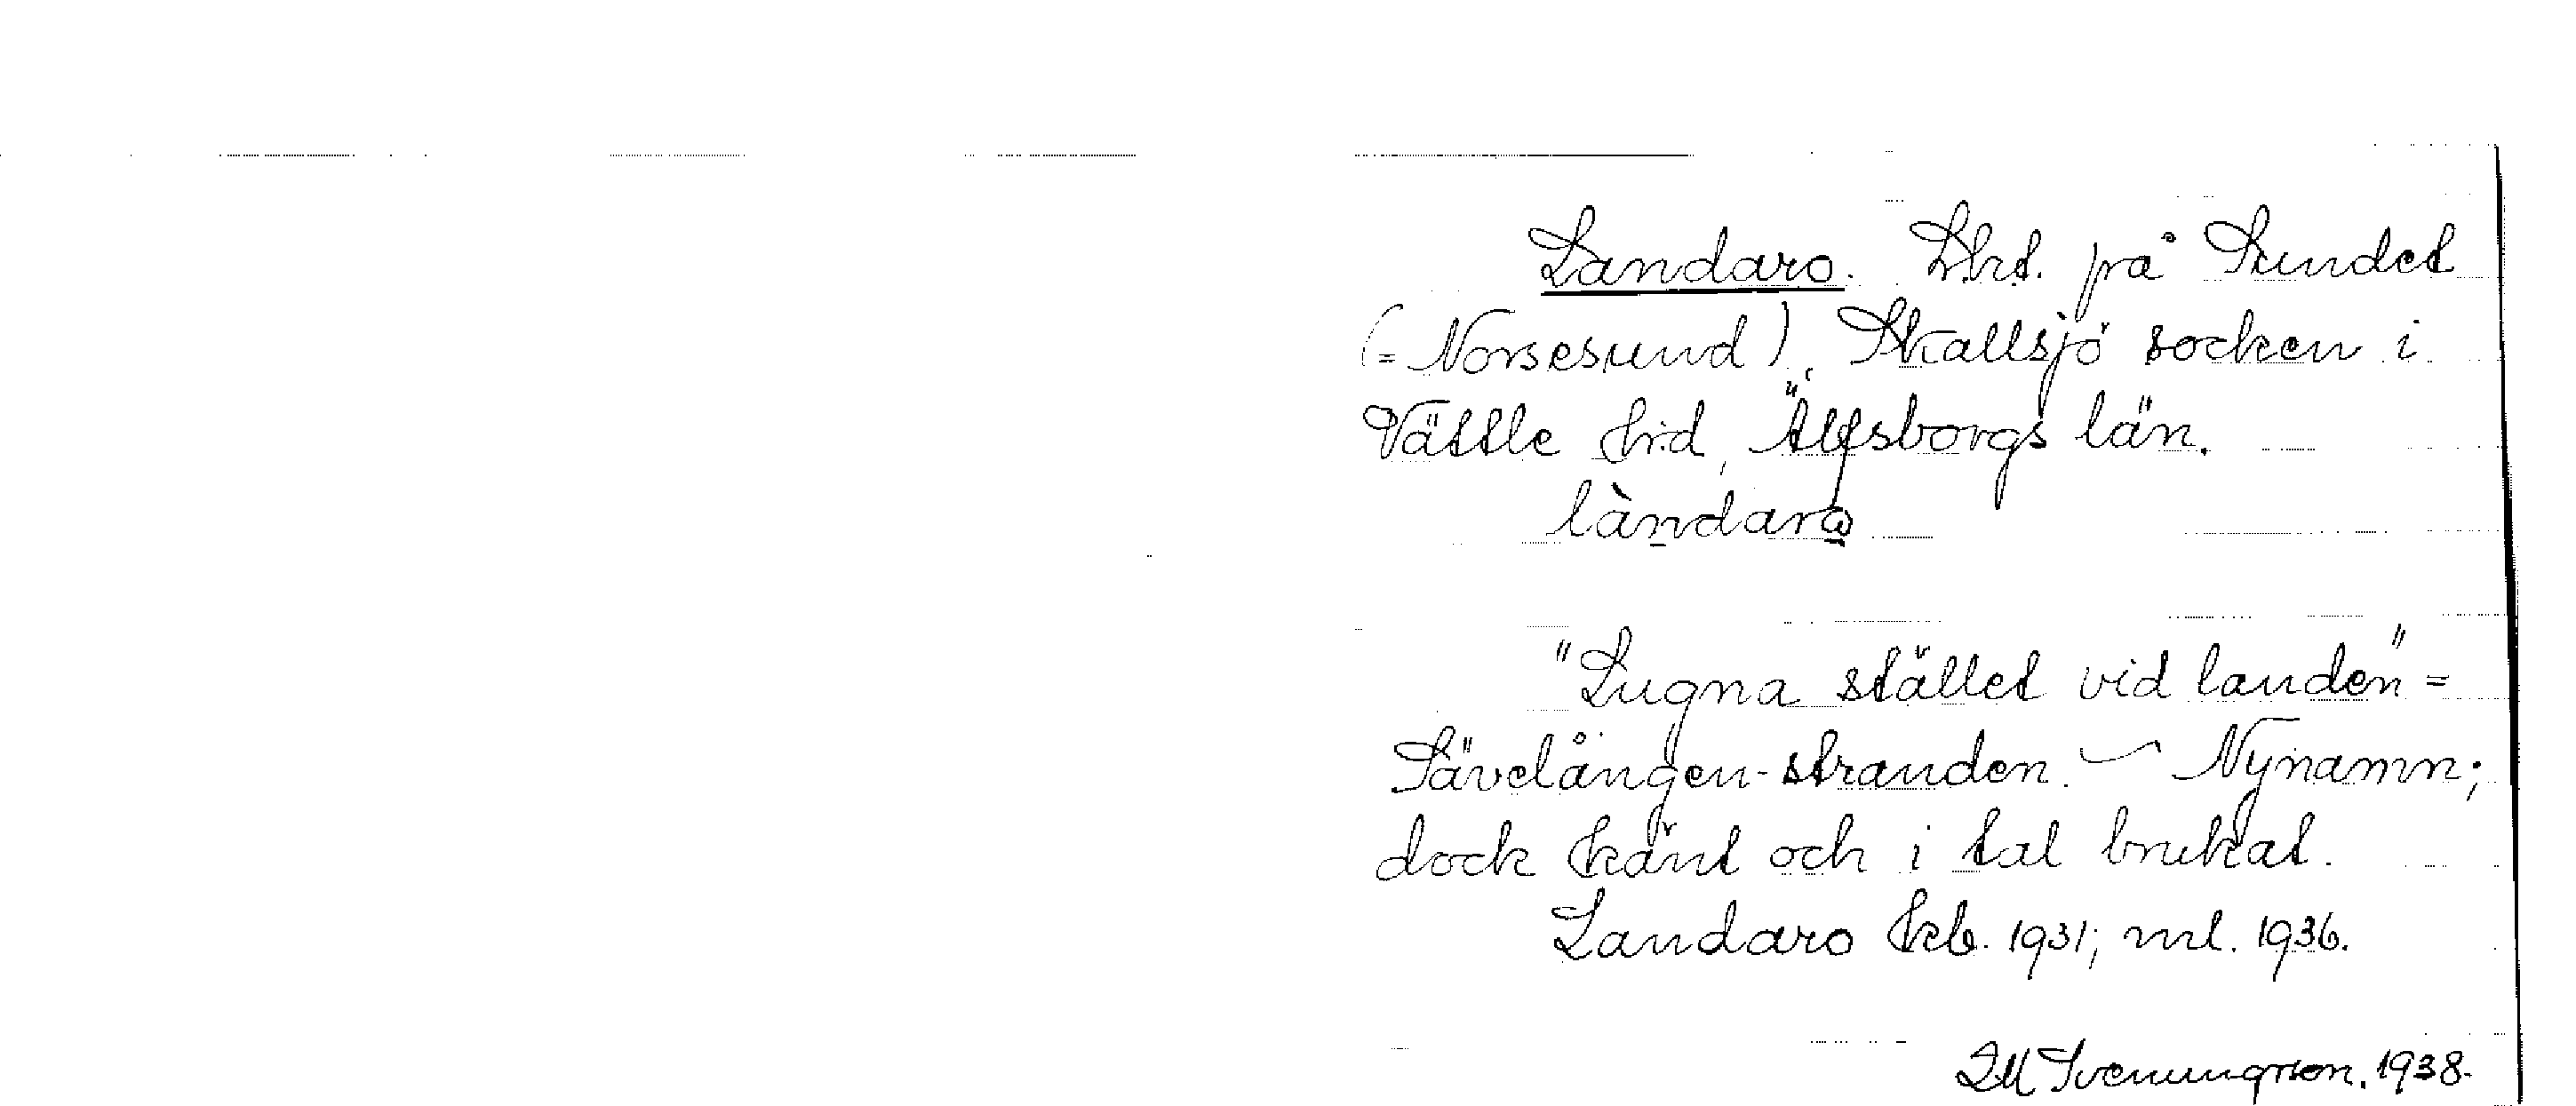 Landaro. Lht. på Sundet
(= Norsesund), Skallsjö socken i
Vättle hd, Älfsborgs län.
làndarω
"Lugna stället vid landen" =
Sävelången-stranden. – Nynamn;
dock känt och i tal brukat.
Landaro kb. 1931; ml. 1936.
LM Svenungsson. 1938.